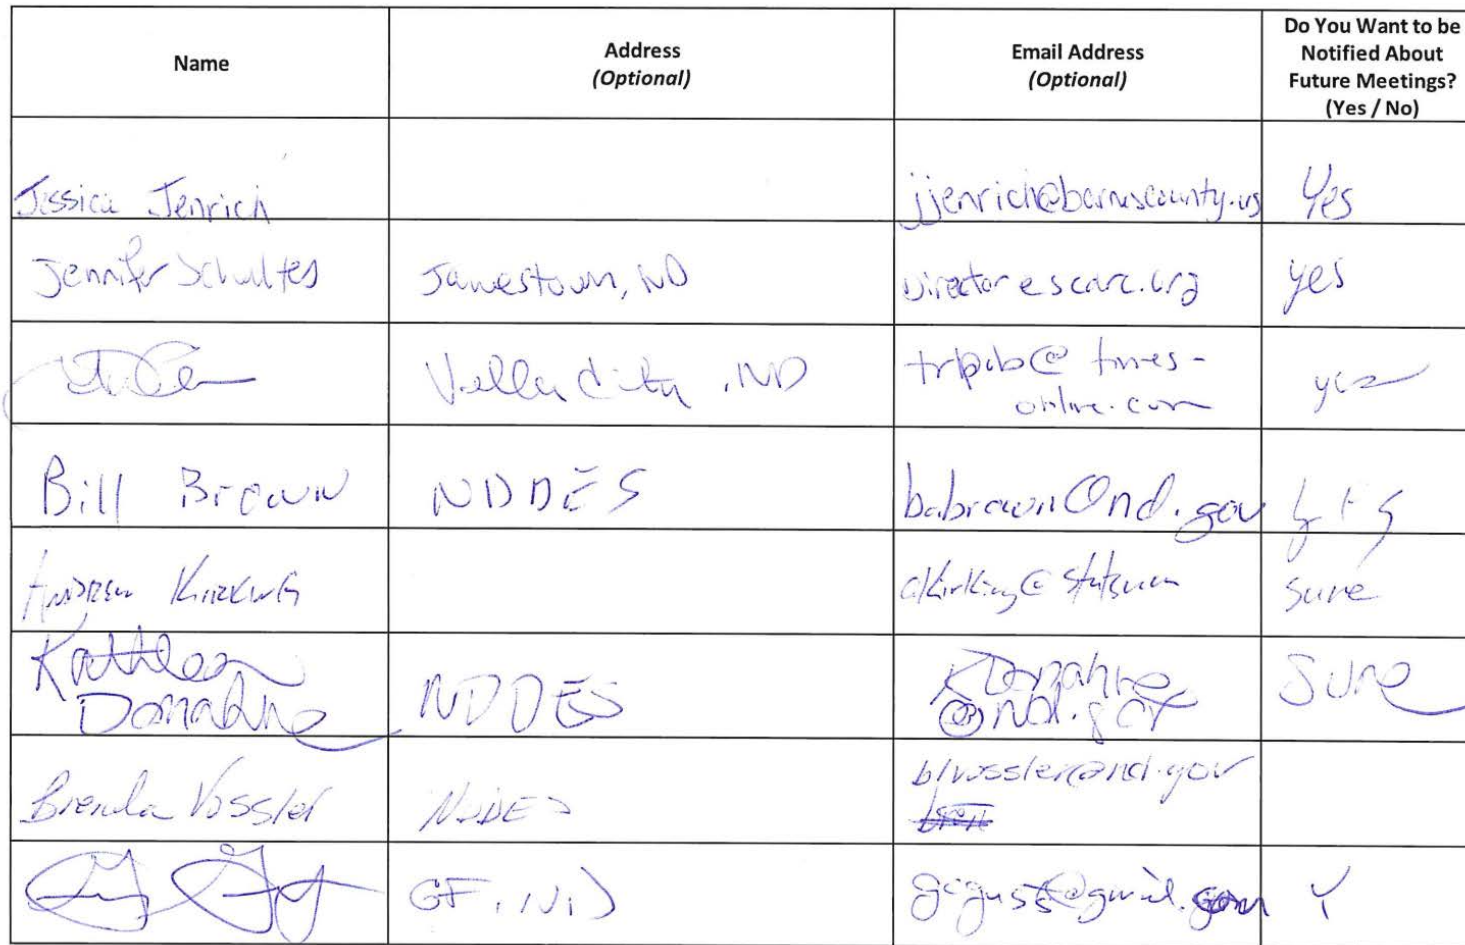 Name
Address
(Optional)
Email Address
(Optional)
Do You Want to be
Notified About
Future Meetings?
(Yes / No)
Jessica Jenrich
jjenrich@barnescounty.us
Yes
Jennifer Schultes
Jamestown, ND
yes
City, ND
times-
online.com
yes
Bill Brown
NDDES
babrown@nd.gov
yes
Andrew Kirking
akirking@stutsman
Sure
Kathleen
Donahue
NDDES
kdonahue
@nd.gov
Sure
Brenda Vossler
NDDES
blvossler@nd.gov
GF, ND
Y